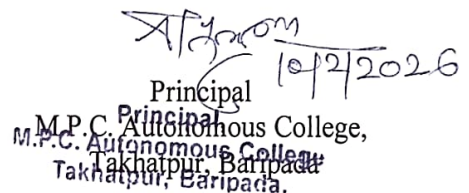 10/2/2026
Principal
M.P.C. Autonomous College,
Takhatpur, Baripada
Principal
M.P.C. Autonomous College
Takhatpur, Baripada.